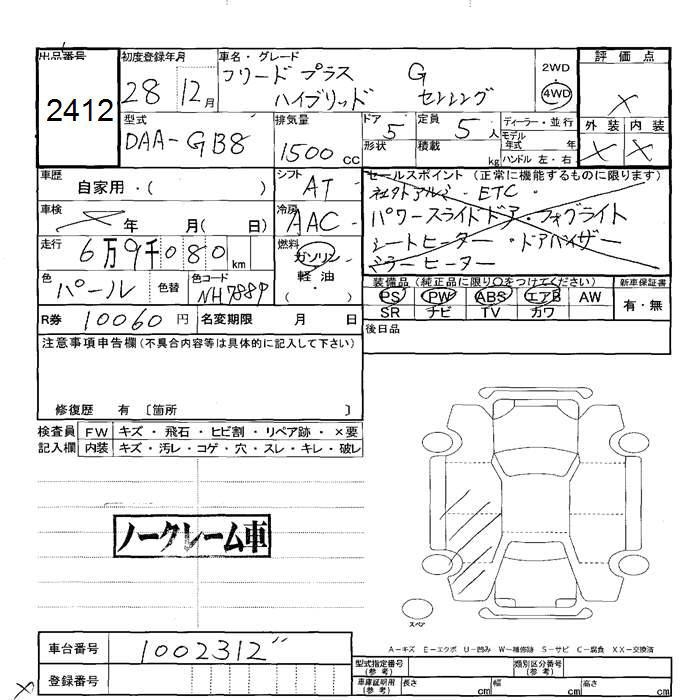 出品番号
2412
初度登録年月
28 12月
車名・グレード
フリードプラス G
ハイブリッド センシング
2WD
4WD
評価点
×
外装 内装
× ×
型式
DAA-GB8
排気量
1500 cc
ドア
5
形状
定員
5 人
積載 kg
ディーラー・並行
モデル年式 年
ハンドル 左・右
車歴
自家用・( )
シフト
AT
セールスポイント (正常に機能するものに限ります)
社外アルミ・ETC・
パワースライドドア・フォグライト
シートヒーター・ドアバイザー
ミラーヒーター
車検
年 月( 日)
冷房
AAC
走行
6万9千080 km
燃料
ガソリン
軽油
色
パール
色替
色コード
NH788P
装備品 (純正品に限り○をつけてください)
PS PW ABS エアB AW
SR ナビ TV カワ
新車保証書
有・無
R券 10060 円 名変期限 月 日
後日品
注意事項申告欄 (不具合内容等は具体的に記入して下さい)
修復歴 有 〔箇所 〕
検査員記入欄
FW キズ・飛石・ヒビ割・リペア跡・×要
内装 キズ・汚レ・コゲ・穴・スレ・キレ・破レ
ノークレーム車
スペア
A-キズ E-エクボ U-凹み W-補修跡 S-サビ C-腐食 XX-交換済
車台番号 1002312"
登録番号
型式指定番号 (参考)
類別区分番号 (参考)
車庫証明用 (参考) 長さ cm 幅 cm 高さ cm
×